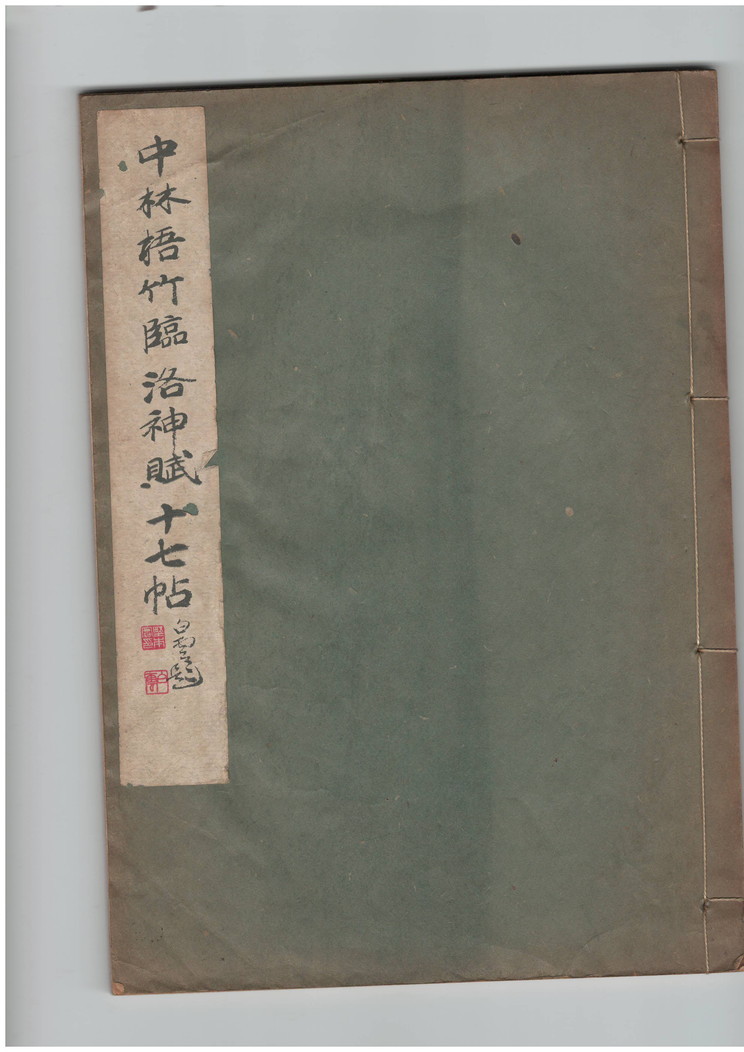 中林梧竹臨洛神賦十七帖
白雲題